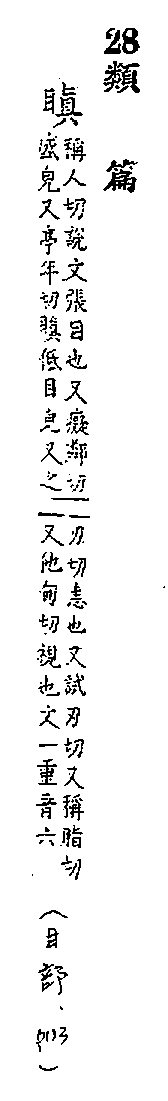 28類篇
瞋
稱人切說文張目也又癡鄰切
盛皃又亭年切瞋低目皃又之
刃切恚也又試刃切又稱脂切
又他甸切視也文一重音六
(目部、)